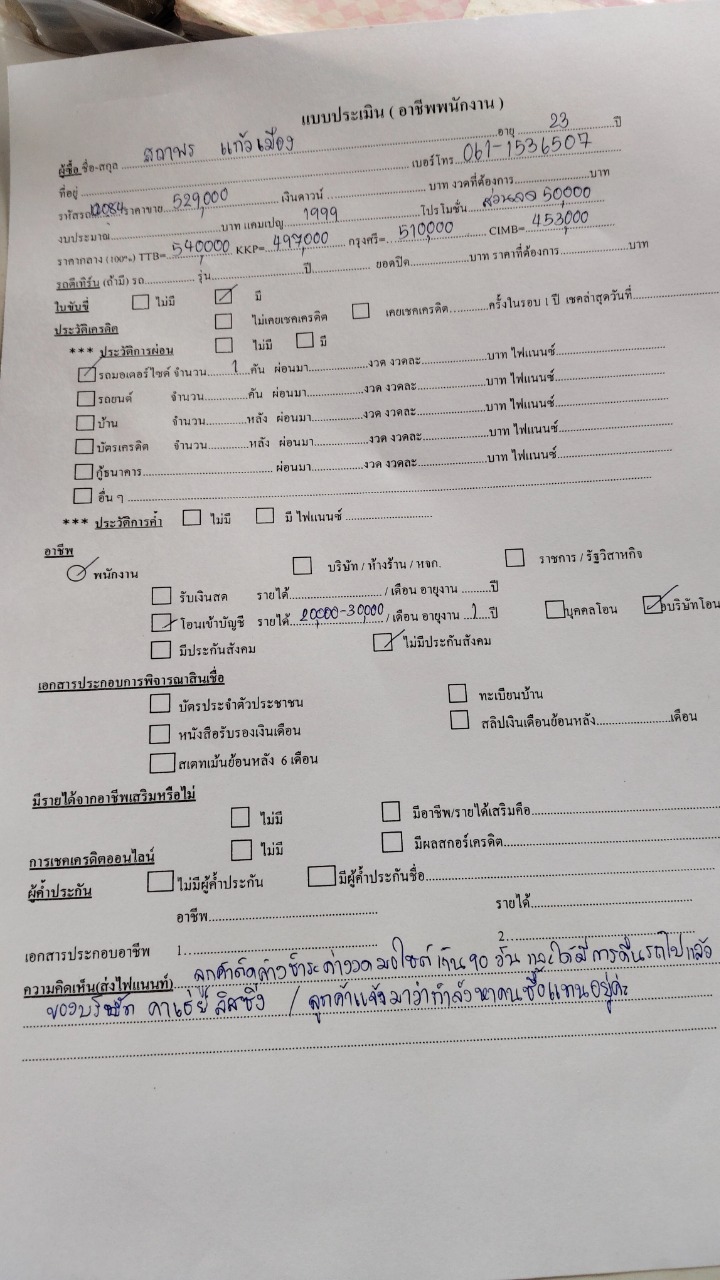 แบบประเมิน ( อาชีพพนักงาน )
ผู้ซื้อ ชื่อ-สกุล สถาพร แก้วเมือง อายุ 23 ปี
ที่อยู่ เบอร์โทร 061-1536507
รหัสรถ 12084 ราคาขาย 529,000 เงินดาวน์ บาท งวดที่ต้องการ บาท
งบประมาณ บาท แคมเปญ 1999 โปรโมชั่น ส่วนลด 50,000
ราคากลาง (100%) TTB= 540000 KKP= 497,000 กรุงศรี= 510,000 CIMB= 453,000
รถตีเทิร์น (ถ้ามี) รถ รุ่น ปี ยอดปิด บาท ราคาที่ต้องการ บาท
ใบขับขี่ ไม่มี มี
ประวัติเครดิต ไม่เคยเชคเครดิต เคยเชคเครดิต ครั้งในรอบ 1 ปี เชคล่าสุดวันที่
*** ประวัติการผ่อน ไม่มี มี
รถมอเตอร์ไซค์ จำนวน 1 คัน ผ่อนมา งวด งวดละ บาท ไฟแนนซ์
รถยนต์ จำนวน คัน ผ่อนมา งวด งวดละ บาท ไฟแนนซ์
บ้าน จำนวน หลัง ผ่อนมา งวด งวดละ บาท ไฟแนนซ์
บัตรเครดิต จำนวน หลัง ผ่อนมา งวด งวดละ บาท ไฟแนนซ์
กู้ธนาคาร ผ่อนมา งวด งวดละ บาท ไฟแนนซ์
อื่น ๆ
*** ประวัติการค้ำ ไม่มี มี ไฟแนนซ์
อาชีพ
พนักงาน บริษัท / ห้างร้าน / หจก. ราชการ / รัฐวิสาหกิจ
รับเงินสด รายได้ / เดือน อายุงาน ปี
โอนเข้าบัญชี รายได้ 20,000-30,000 / เดือน อายุงาน 1 ปี บุคคลโอน บริษัทโอน
มีประกันสังคม ไม่มีประกันสังคม
เอกสารประกอบการพิจารณาสินเชื่อ
บัตรประจำตัวประชาชน ทะเบียนบ้าน
หนังสือรับรองเงินเดือน สลิปเงินเดือนย้อนหลัง เดือน
สเตทเม้นย้อนหลัง 6 เดือน
มีรายได้จากอาชีพเสริมหรือไม่
ไม่มี มีอาชีพ/รายได้เสริมคือ
การเชคเครดิตออนไลน์ ไม่มี มีผลสกอร์เครดิต
ผู้ค้ำประกัน ไม่มีผู้ค้ำประกัน มีผู้ค้ำประกันชื่อ
อาชีพ รายได้
เอกสารประกอบอาชีพ 1 2
ความคิดเห็น(ส่งไฟแนนท์) ลูกค้าติดค้างชำระค่างวดมอไซต์ เกิน 90 วัน และได้มีการคืนรถไปแล้ว
ของบริษัท คาเธ่ย์ ลิสซิ่ง / ลูกค้าแจ้งมาว่ากำลังหาคนซื้อแทนอยู่ค่ะ